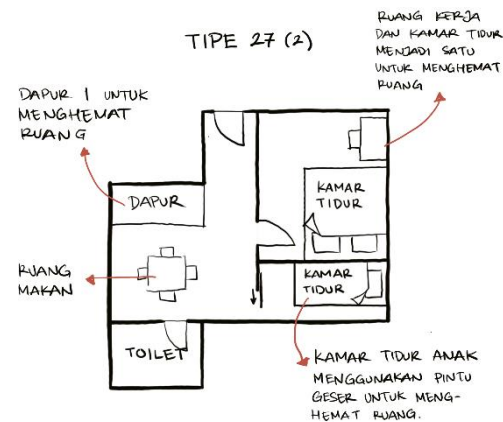 TIPE 27 (2)
RUANG KERJA
DAN KAMAR TIDUR
MENJADI SATU
UNTUK MENGHEMAT
RUANG
DAPUR I UNTUK
MENGHEMAT
RUANG
DAPUR
KAMAR
TIDUR
RUANG
MAKAN
KAMAR
TIDUR
TOILET
KAMAR TIDUR ANAK
MENGGUNAKAN PINTU
GESER UNTUK MENG-
HEMAT RUANG.